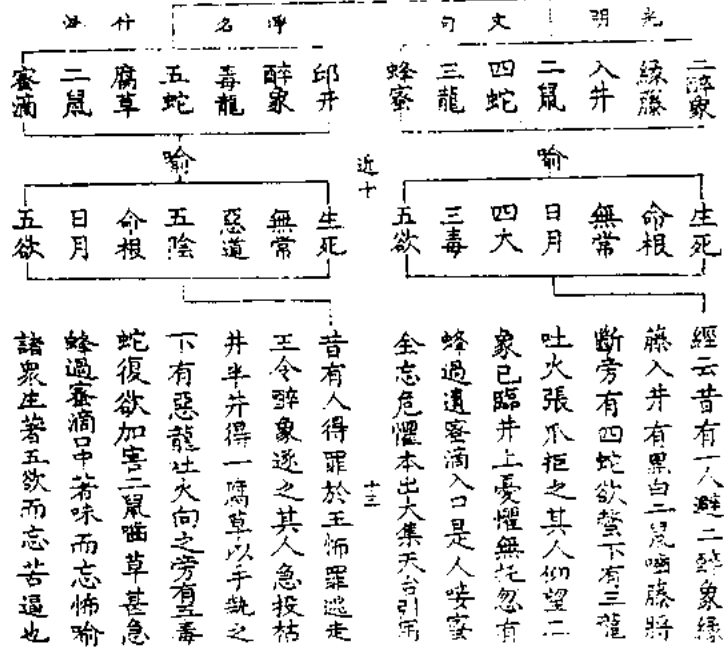 光明文句
二醉象
緣藤
入井
二鼠
四蛇
三龍
蜂蜜
喻
生死
命根
無常
日月
四大
三毒
五欲
經云昔有一人避二醉象緣
藤入井有黑白二鼠嚙藤將
斷旁有四蛇欲螫下有三龍
吐火張爪拒之其人仰望二
象已臨井上憂懼無托忽有
蜂過遺蜜滴入口是人唼蜜
全忘危懼本出大集天台引
近十
十三
淨名什
邱井
醉象
毒龍
五蛇
腐草
二鼠
蜜滴
喻
生死
無常
惡道
五陰
命根
日月
五欲
昔有人得罪於王怖罪逃走
王令醉象逐之其人急投枯
井半井得一腐草以手執之
下有惡龍吐火向之旁有五毒
蛇復欲加害二鼠嚙草甚急
蜂過蜜滴口中著味而忘怖喻
諸眾生著五欲而忘苦逼也